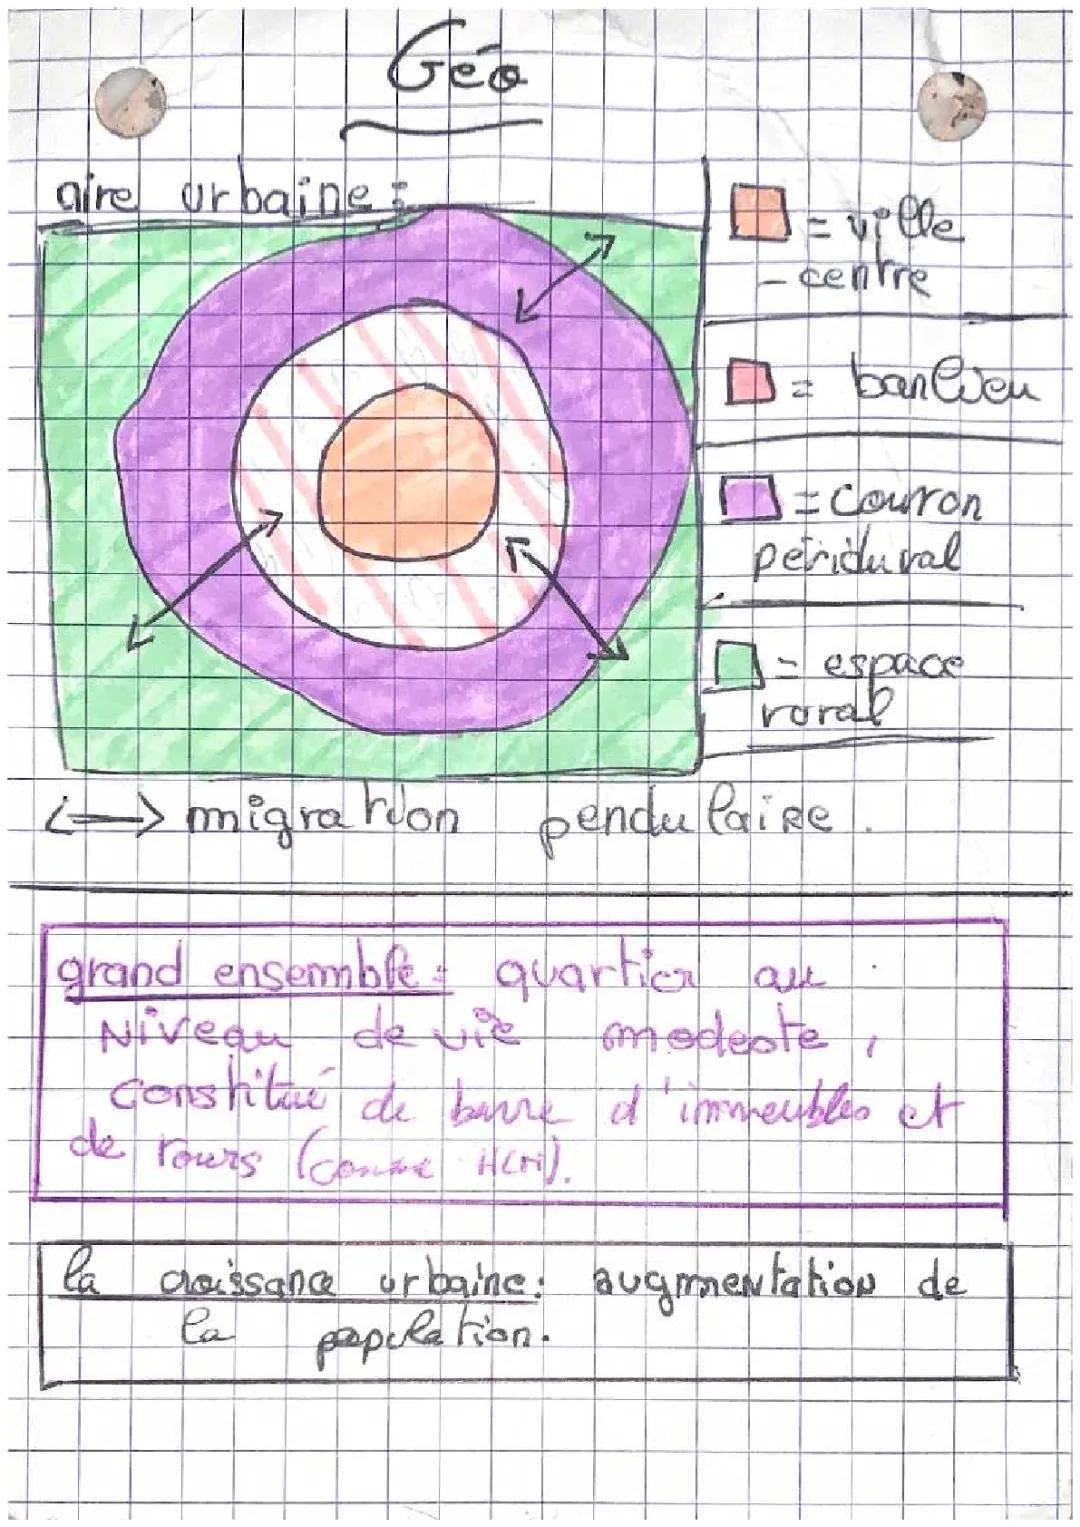 Géo
aire urbaine :
= ville
- centre
= banlieu
= couron
péridural
= espace
rural
<--> migration pendulaire.
grand ensemble : quartier au
Niveau de vie modeste,
Constitué de barre d'immeubles et
de tours (comme HLM).
la croissance urbaine : augmentation de
la population.